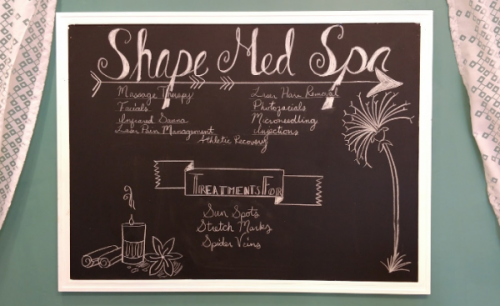 Shape Med Spa
Massage Therapy
Facials
Infrared Sauna
Laser Pain Management
Laser Hair Removal
Photofacials
Microneedling
Injections
Athletic Recovery
Treatments For
Sun Spots
Stretch Marks
Spider Veins